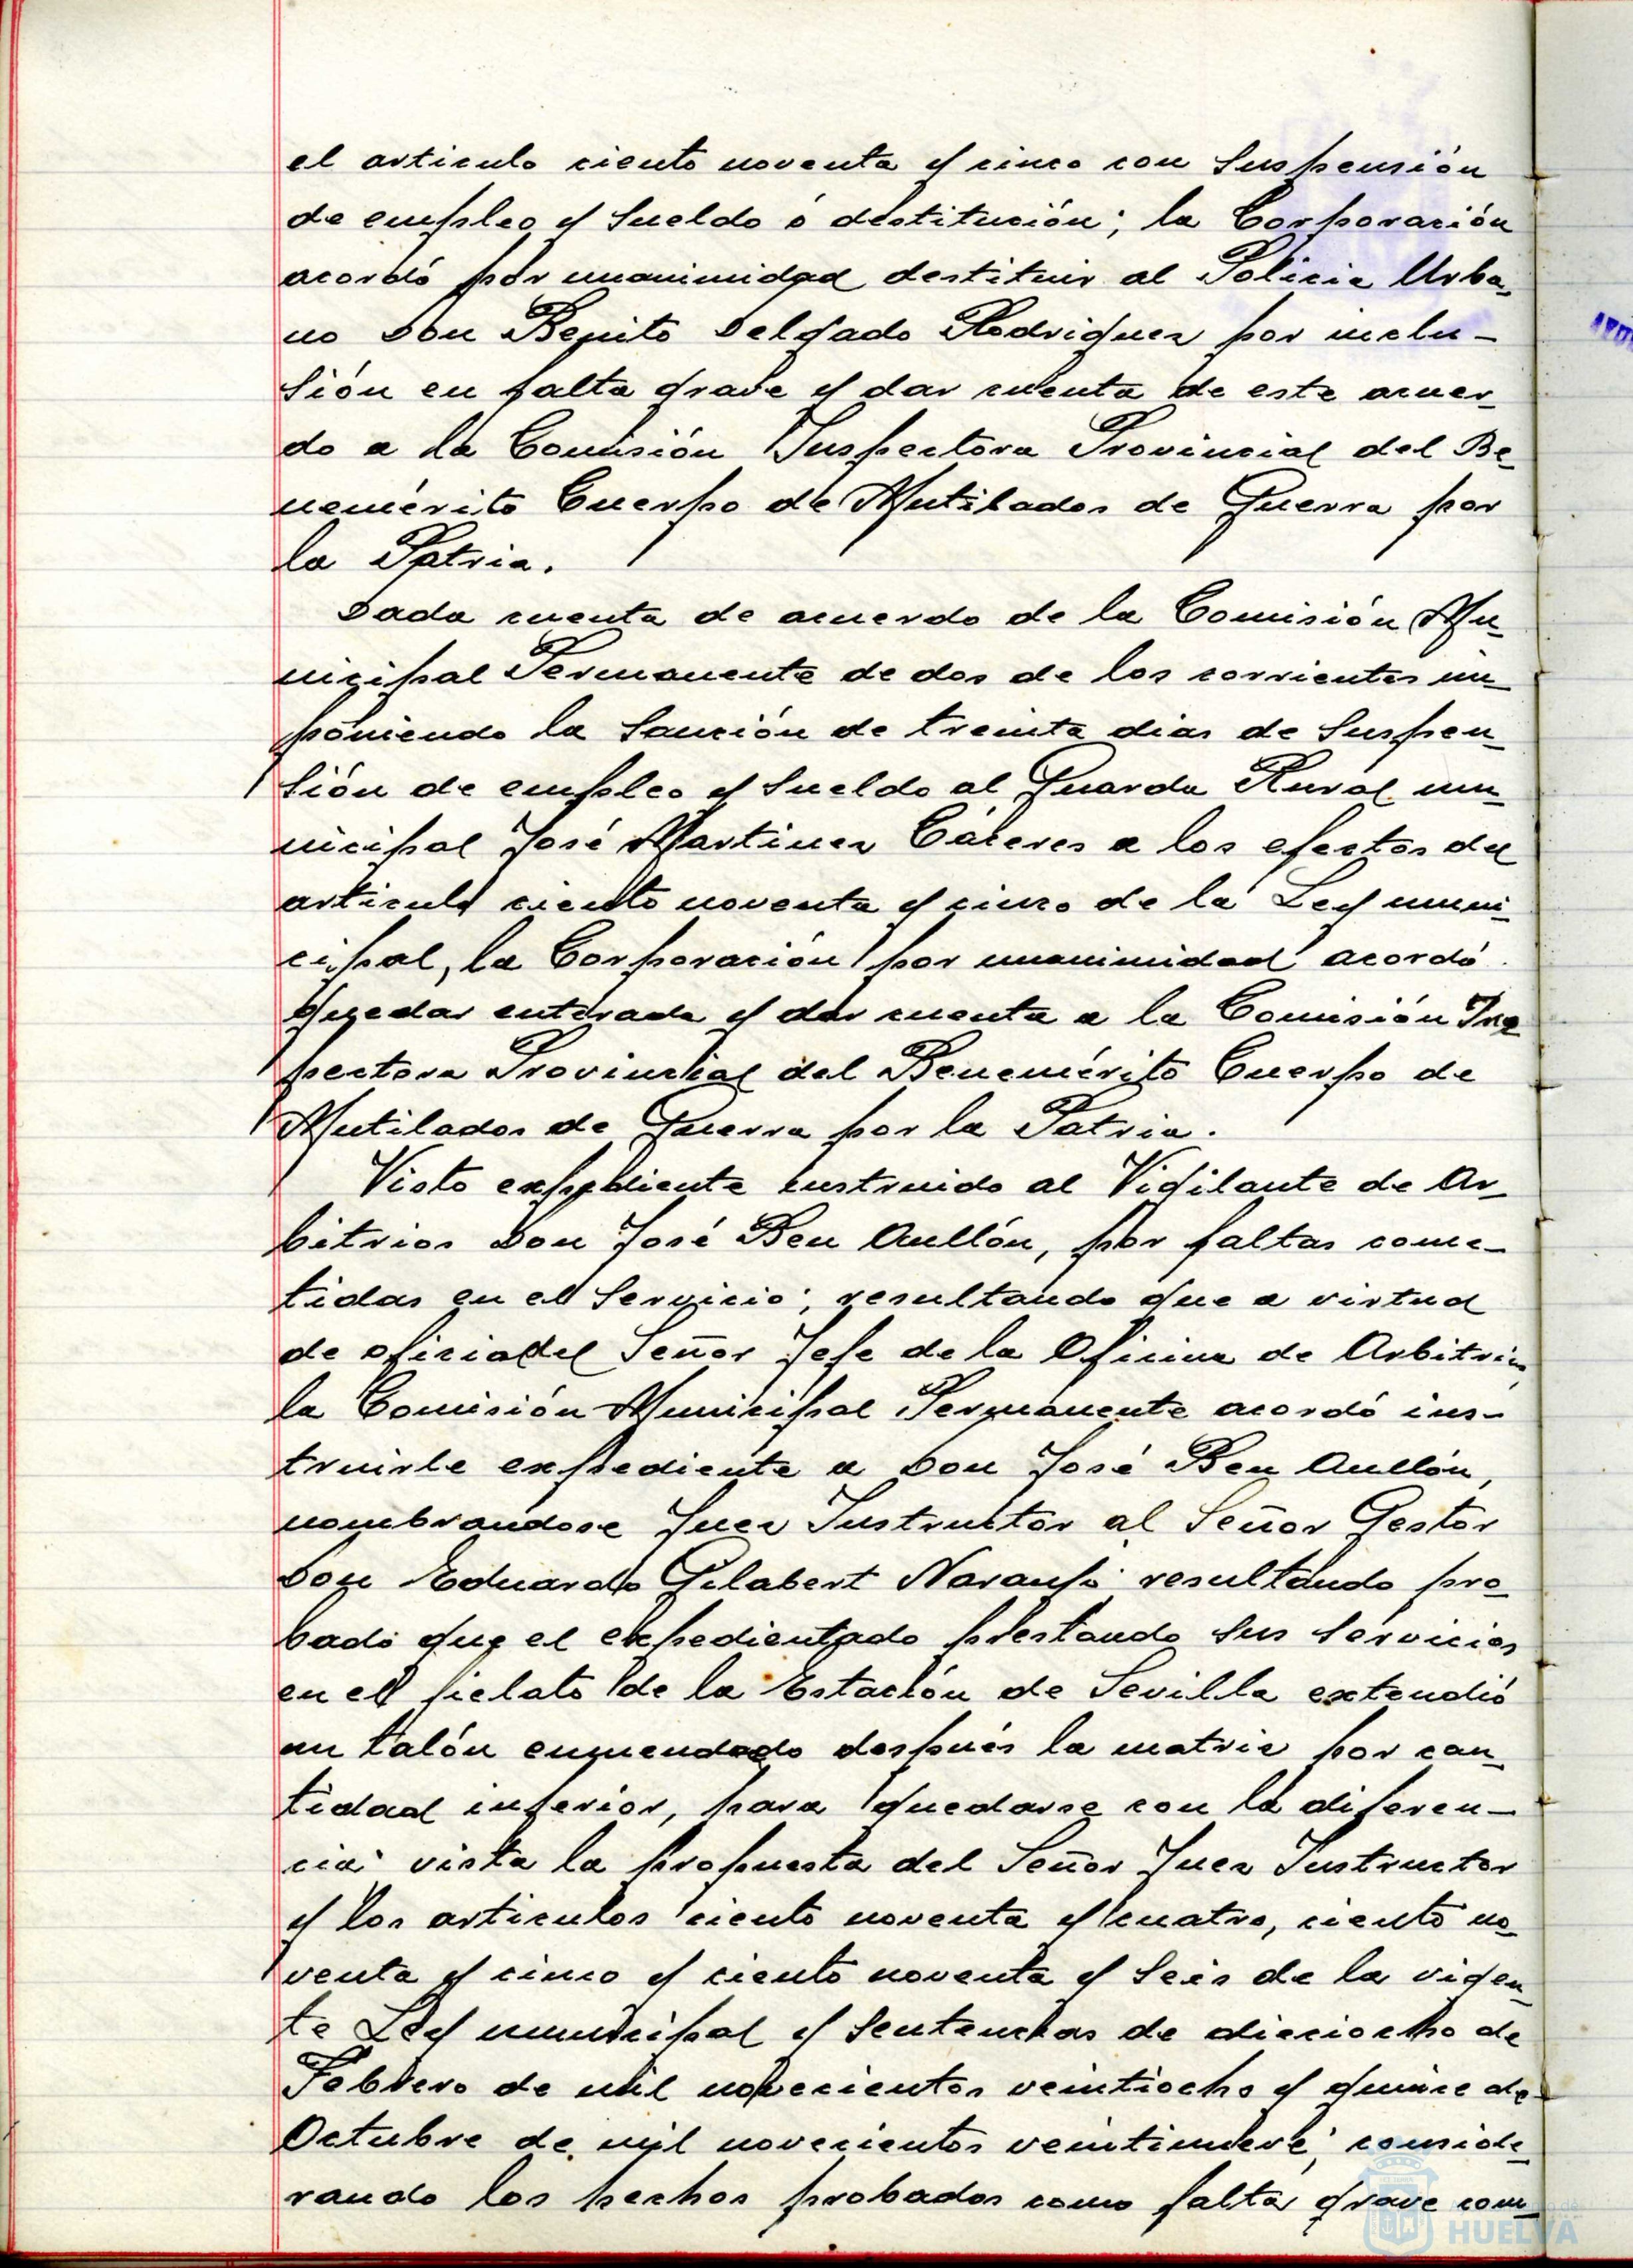 el articulo ciento noventa y cinco con suspensión
de empleo y sueldo ó destitución; la Corporación
acordó por unanimidad destituir al Policia Urba-
no Don Benito Delgado Rodriguez por inclu-
sión en falta grave y dar cuenta de este acuer-
do a la Comisión Inspectora Provincial del Be-
nemérito Cuerpo de Mutilados de Guerra por
la Patria.
Dada cuenta de acuerdo de la Comisión Mu-
nicipal Permanente de dos de los corrientes im-
poniendo la sanción de treinta dias de suspen-
sión de empleo y sueldo al Guarda Rural mu-
nicipal José Martinez Cáceres a los efectos del
articulo ciento noventa y cinco de la Ley muni-
cipal, la Corporación por unanimidad acordó
quedar enterada y dar cuenta a la Comisión Ins-
pectora Provincial del Benemérito Cuerpo de
Mutilados de Guerra por la Patria.
Visto expediente instruido al Vigilante de Ar-
bitrios Don José Ben Aullón, por faltas come-
tidas en el servicio; resultando que a virtud
de oficio del Señor Jefe de la Oficina de Arbitrios
la Comisión Municipal Permanente acordó ins-
truirle expediente a Don José Ben Aullón,
nombrandose Juez Instructor al Señor Gestor
Don Eduardo Gilabert Naranjo; resultando pro-
bado que el expedientado prestando sus servicios
en el fielato de la Estación de Sevilla extendió
un talón enmendado después la matriz por can-
tidad inferior, para quedarse con la diferen-
cia; vista la propuesta del Señor Juez Instructor
y los articulos ciento noventa y cuatro, ciento no-
venta y cinco y ciento noventa y seis de la vigen-
te Ley municipal y sentencias de dieciocho de
Febrero de mil novecientos veintiocho y quince de
Octubre de mil novecientos veintinueve; conside-
rando los hechos probados como falta grave com-
HUELVA